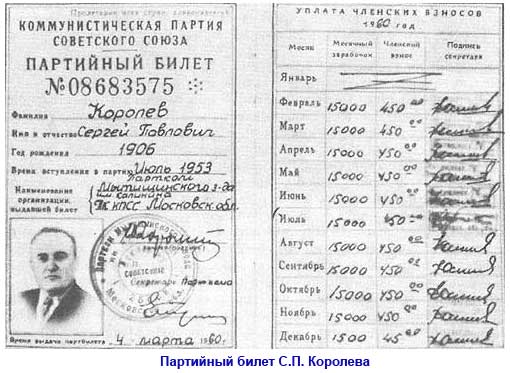 Пролетарии всех стран, соединяйтесь!
КОММУНИСТИЧЕСКАЯ ПАРТИЯ
СОВЕТСКОГО СОЮЗА
ПАРТИЙНЫЙ БИЛЕТ
№08683575
Фамилия Королев
Имя и отчество Сергей Павлович
Год рождения 1906
Время вступления в партию Июль 1953
Наименование организации, выдавшей билет
Мытищинского з-да
им Калинина
ГК КПСС Московск обл.
Секретарь Парткома
Время выдачи партбилета 4 марта 1960 г.
УПЛАТА ЧЛЕНСКИХ ВЗНОСОВ
1960 год
Месяц Месячный заработок Членский взнос Подпись секретаря
Январь
Февраль 15000 450 00
Март 15000 450 00
Апрель 15000 450 00
Май 15000 450 00
Июнь 15000 450 00
Июль 15000 450 00
Август 15000 450 00
Сентябрь 15000 450 00
Октябрь 15000 450 00
Ноябрь 15000 450 00
Декабрь 1500 45 00
Партийный билет С.П. Королева